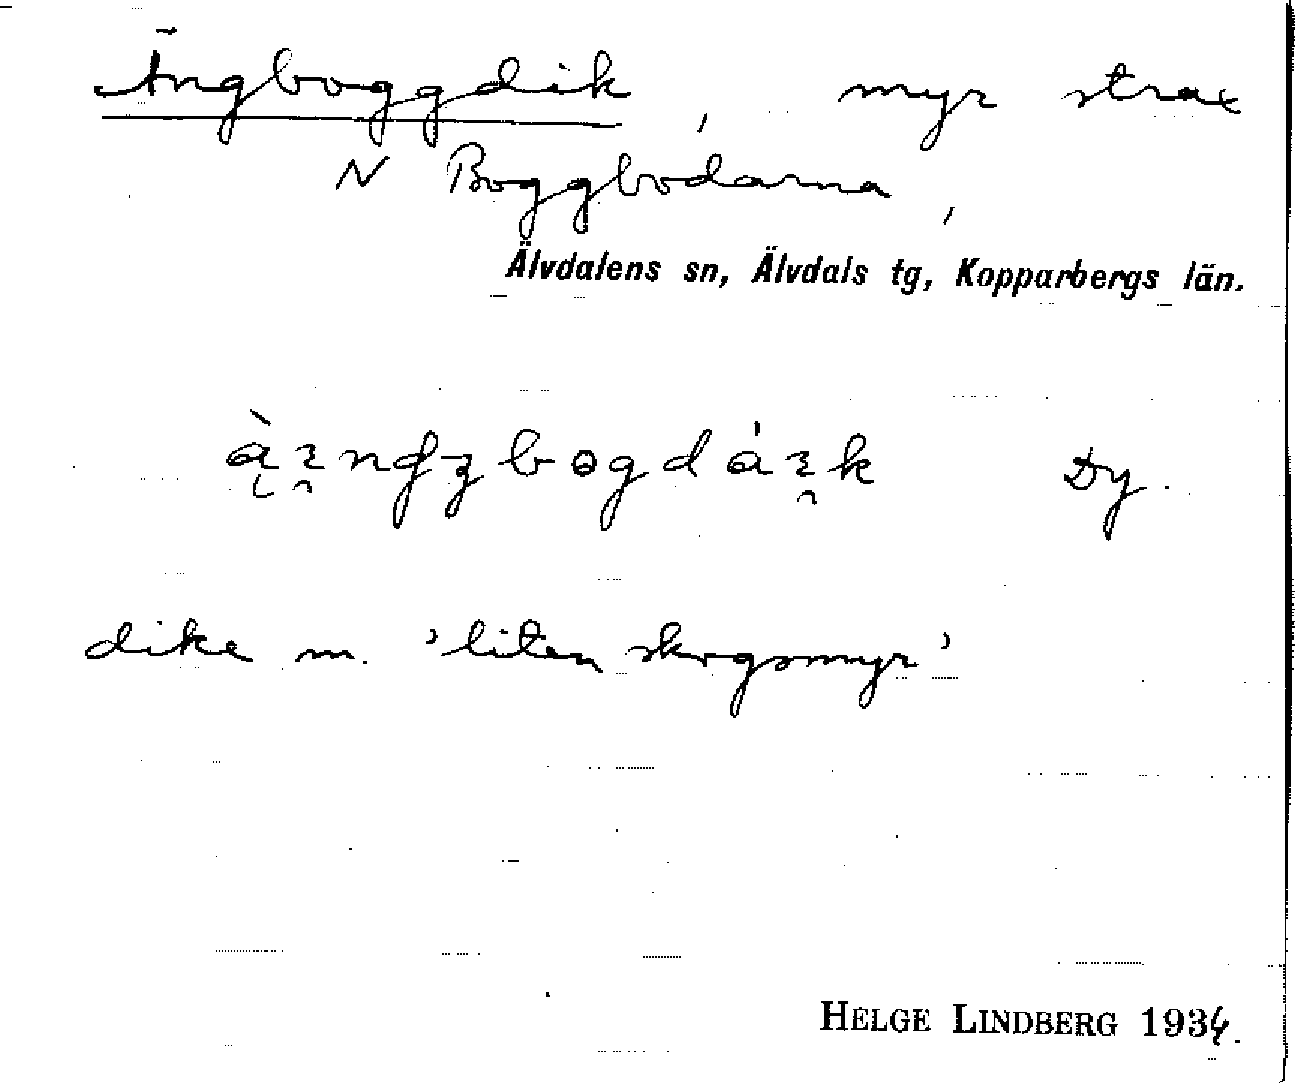 Ingboggdik, myr strax
N Boggbodarna,
Älvdalens sn, Älvdals tg, Kopparbergs län.
Dy.
dike m. 'liten skogsmyr'
HELGE LINDBERG 1934.